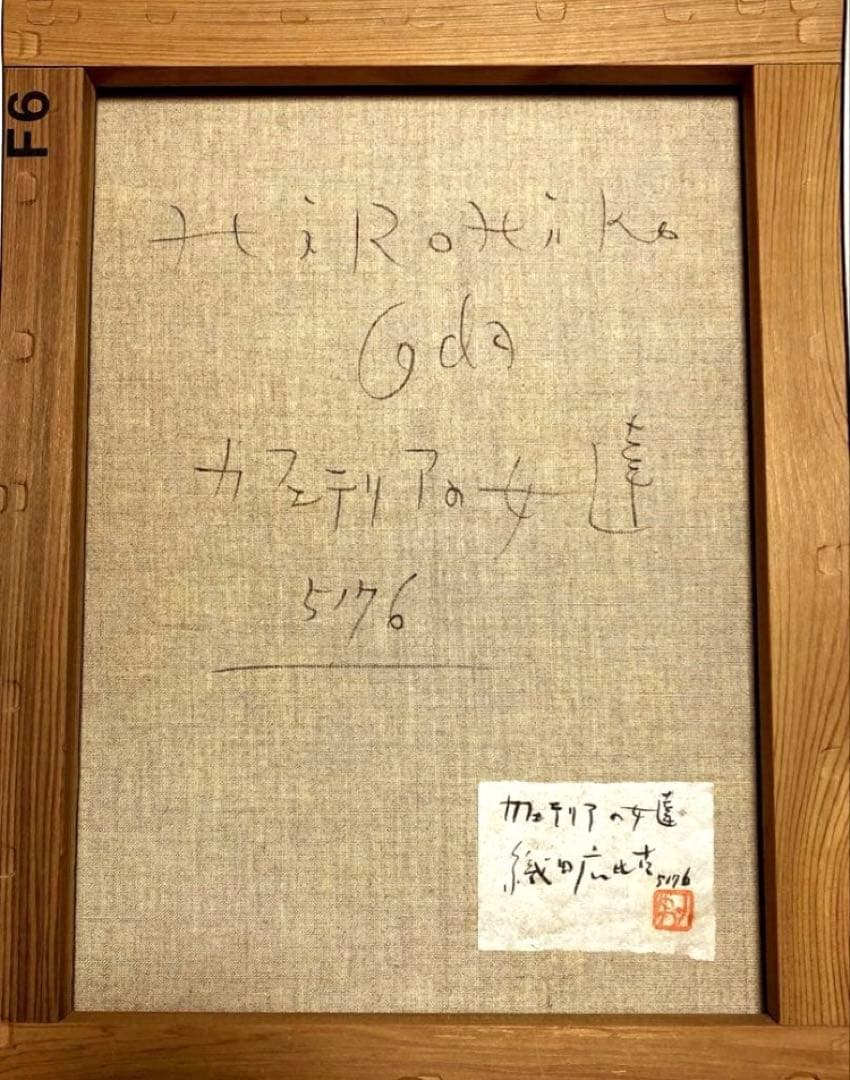 F6
HiRoHiKo
Oda
カフェテリアの女達
5176
カフェテリアの女達
織田広比古 5176